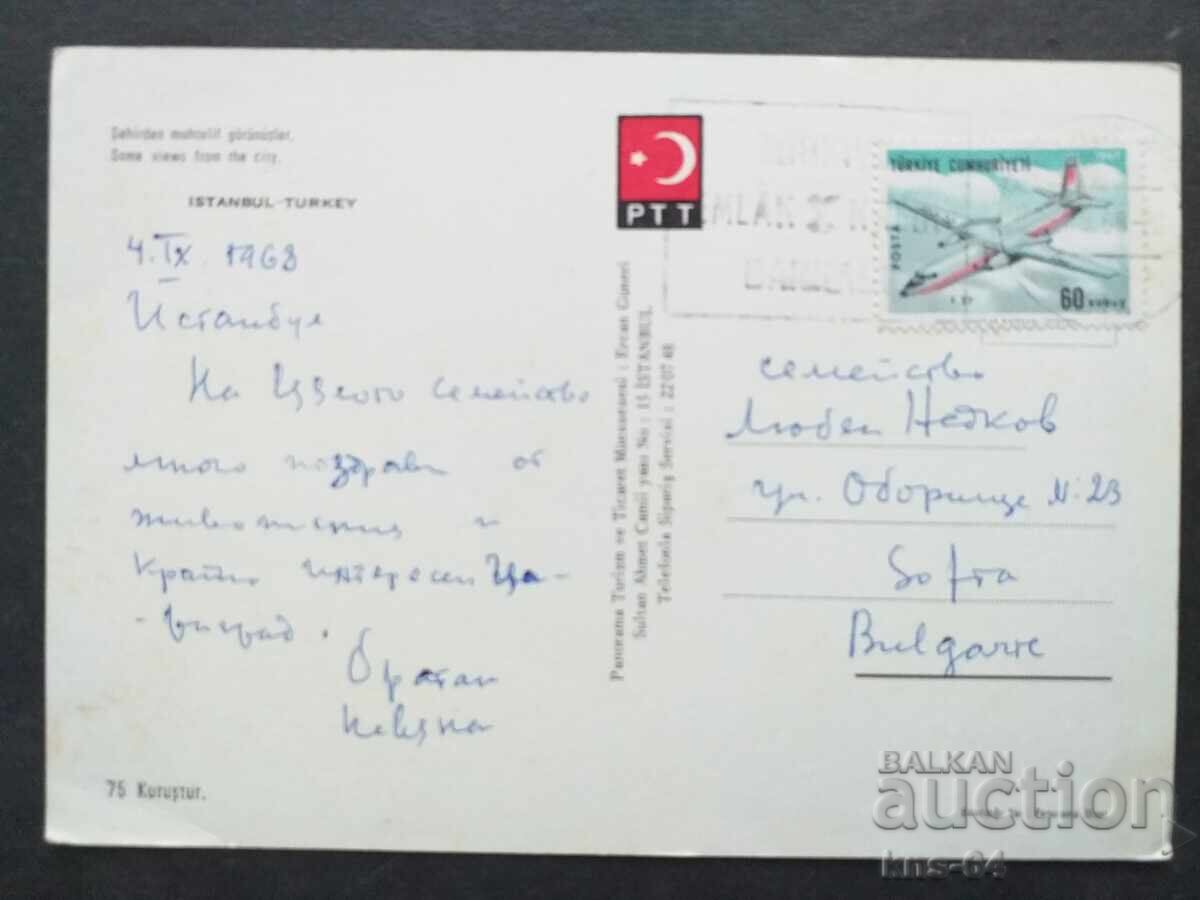 Şehirden muhtelif görünüşler.
Some views from the city.
ISTANBUL-TURKEY
4.IX.1968
Истанбул
На цялото семейство
много поздрави от
живописния и
крайно интересен Ца-
-риград.
Братан
Невяна
75 Kuruştur.
PTT
Panorama Turizm ve Ticaret Müessesesi : Ercan Güneri
Sultan Ahmet Camii yanı No : 15 İSTANBUL
Telefonla Sipariş Servisi : 22 07 68
EMLÂK
TÜRKİYE CUMHURİYETİ
1967
POSTA
60 KURUŞ
семейство
Любен Недков
ул. Оборище №: 23
Sofia
Bulgarie
BALKAN
auction
kns-64